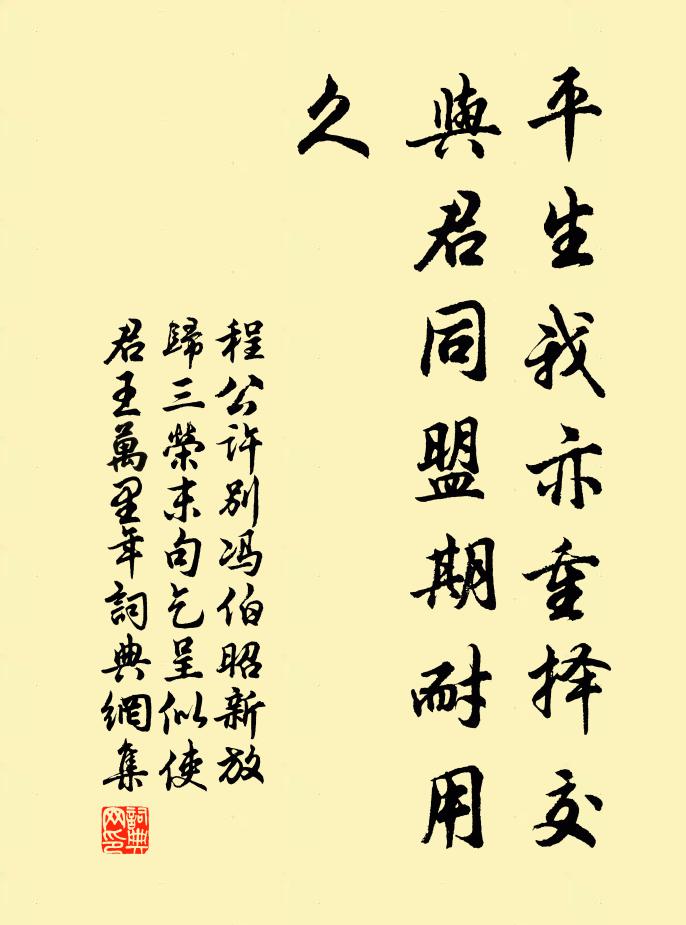 平生我亦重择交
與君同盟期耐用
久
程公許别冯伯昭新放
歸三榮末句乞呈似使
君王萬里年詞典網集
詞典网印